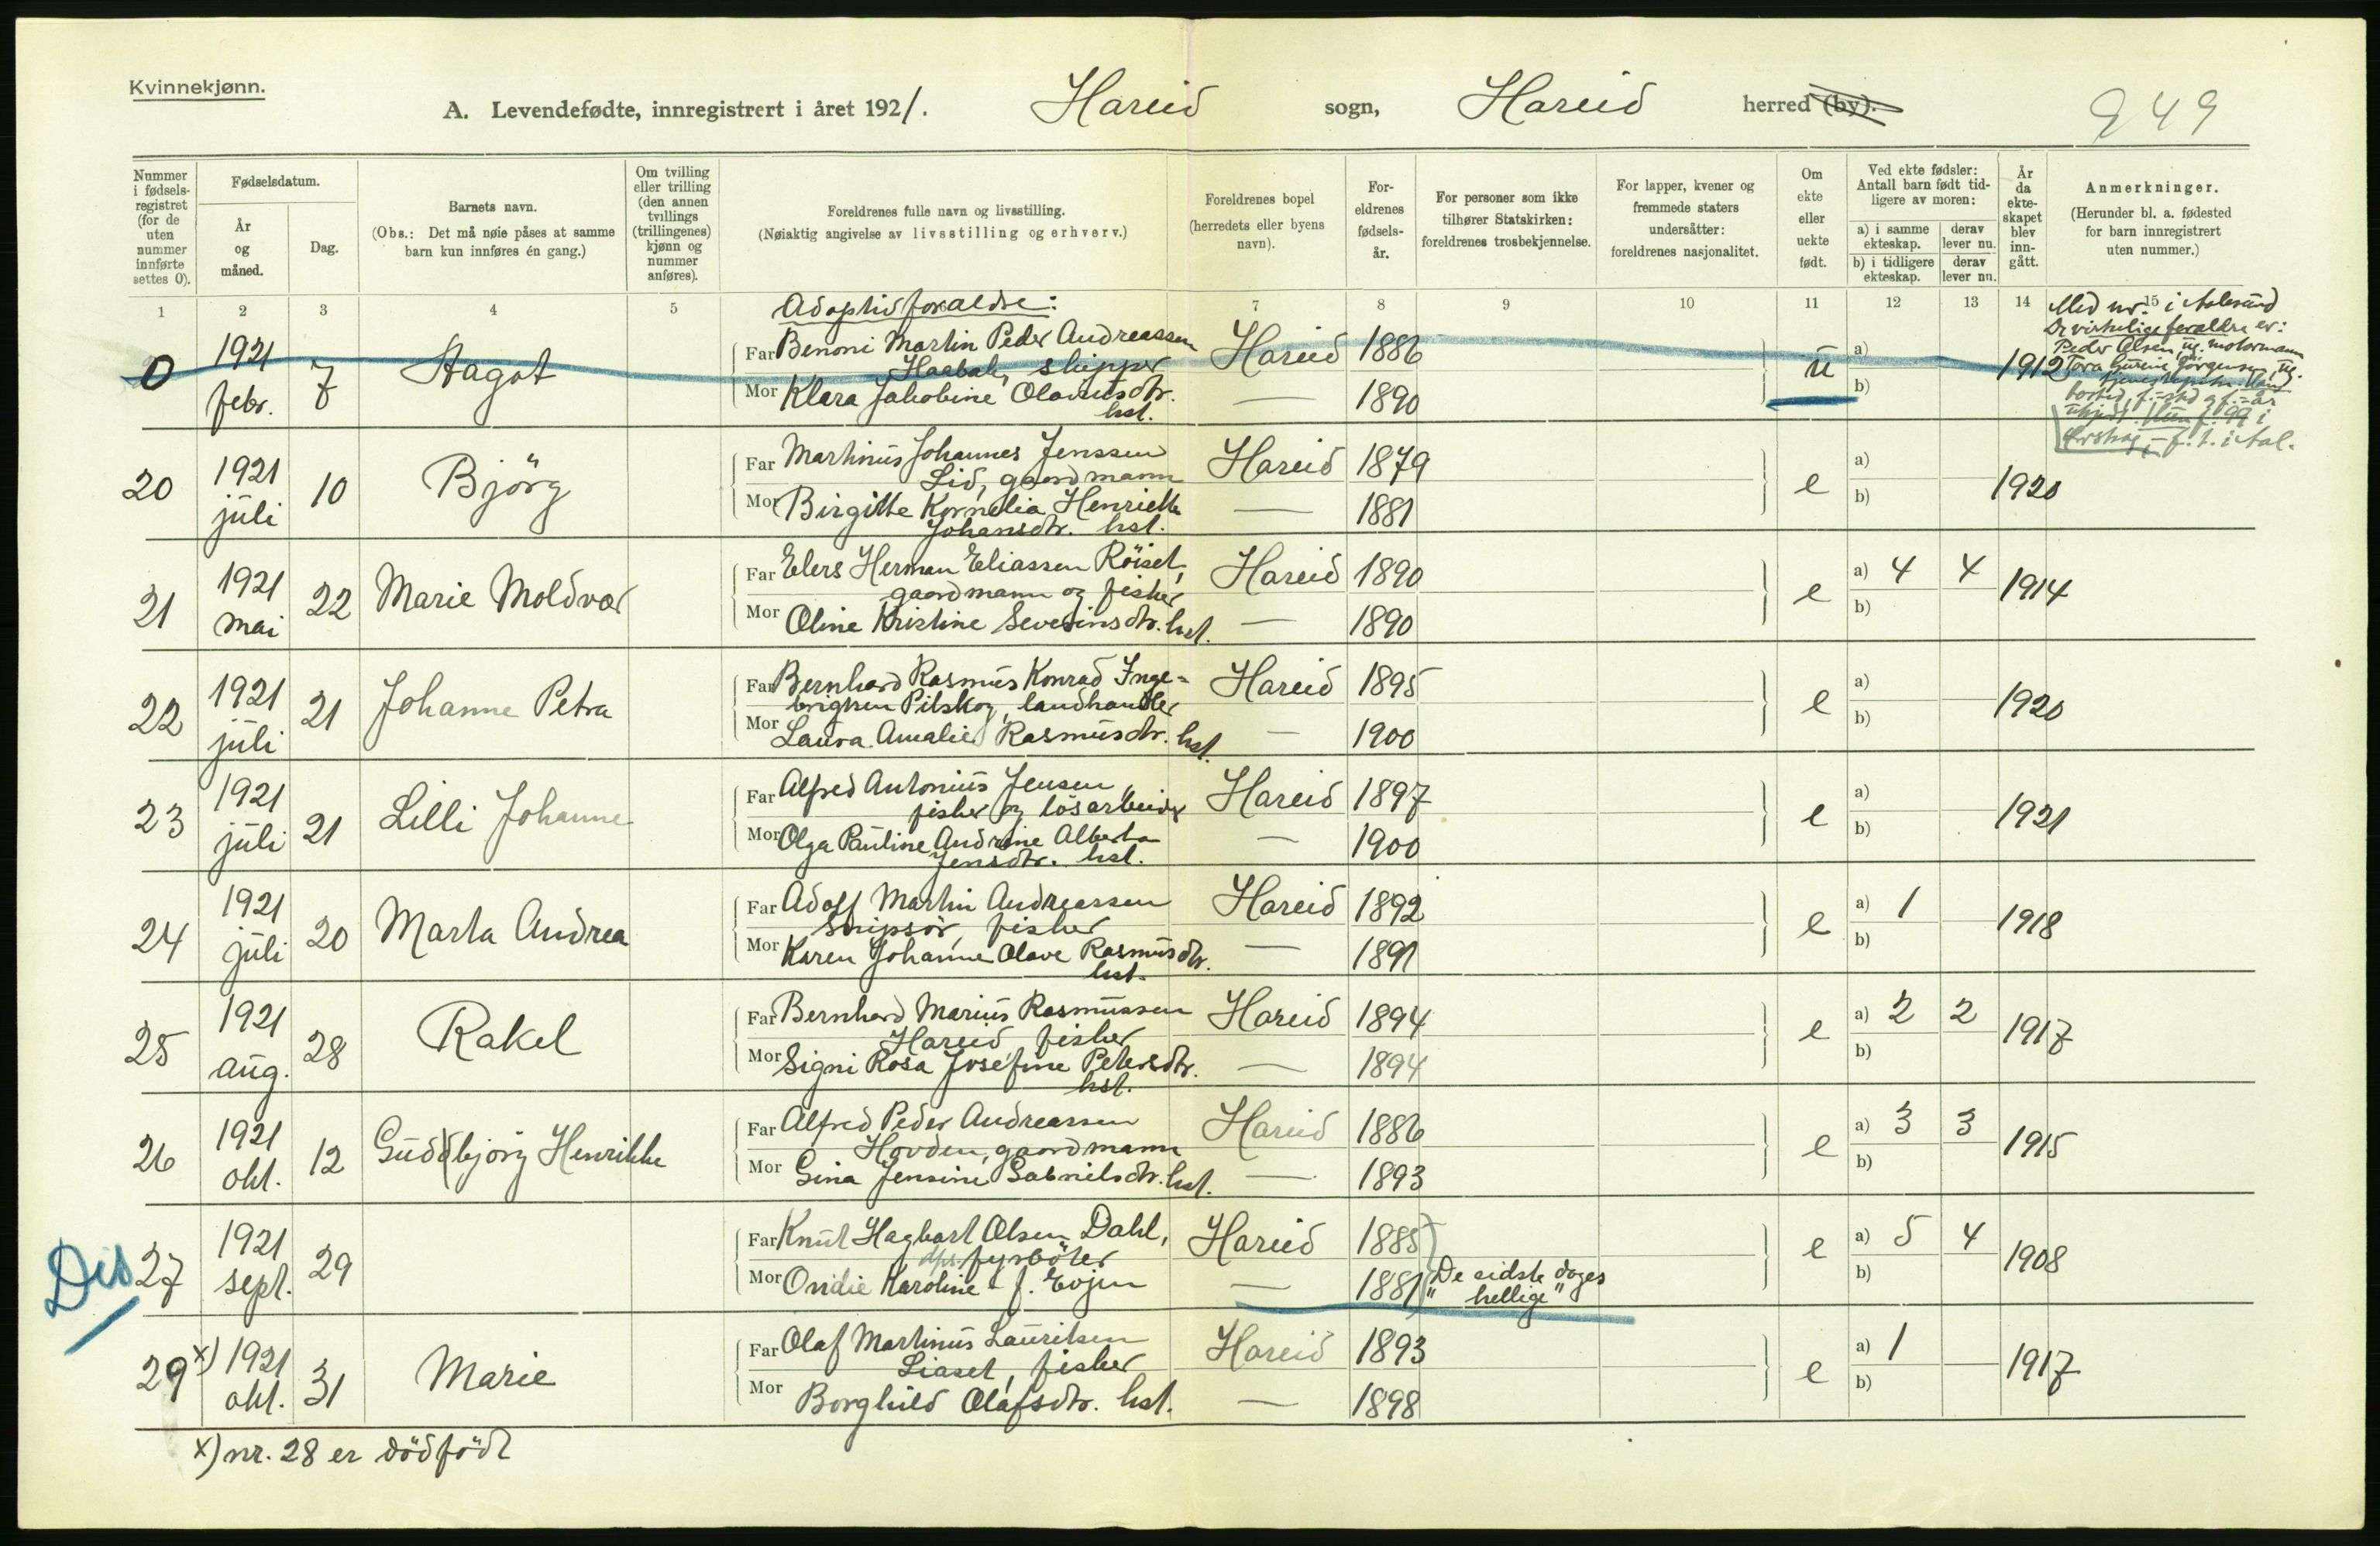 Kvinnekjønn.
A. Levendefødte, innregistrert i året 1921. Hareid sogn, Hareid herred (by).
949
Nummer i fødsels-registret (for de uten nummer innførte settes 0).
Fødselsdatum.
År og måned.
Dag.
Barnets navn.
(Obs.: Det må nøie påses at samme barn kun innføres én gang.)
Om tvilling eller trilling (den annen tvillings (trillingenes) kjønn og nummer anføres).
Foreldrenes fulle navn og livsstilling.
(Nøiaktig angivelse av livsstilling og erhverv.)
Foreldrenes bopel (herredets eller byens navn).
For-eldrenes fødsels-år.
For personer som ikke tilhører Statskirken: foreldrenes trosbekjennelse.
For lapper, kvener og fremmede staters undersåtter: foreldrenes nasjonalitet.
Om ekte eller uekte født.
Ved ekte fødsler: Antall barn født tid-ligere av moren:
a) i samme ekteskap. derav lever nu.
b) i tidligere ekteskap. derav lever nu.
År da ekte-skapet blev inn-gått.
Anmerkninger.
(Herunder bl. a. fødested for barn innregistrert uten nummer.)
1 2 3 4 5 7 8 9 10 11 12 13 14 15
Adoptivforaldre:
Med nr. i Aalesund
De virkelige foraldre er:
Peder Olsen, ug. motormann
0 1921 febr. 7 Hagot
Far Benoni Martin Peder Andreassen Hareid 1886
skipper
Mor Klara Jakobine Olavusdtr. — 1890
hst.
u a) b) 1912
20 1921 juli 10 Björg
Far Martinus Johannes Jenssen Hareid 1879
Lid, gaardmann
Mor Birgitte Kornelia Henriette — 1881
Johansdtr. hst.
e a) b) — 1920
21 1921 mai 22 Marie Moldvær
Far Elers Herman Eliassen Röiset, Hareid 1890
gaardmann og fisker
Mor Oline Kristine Severinsdtr. hst. — 1890
e a) 4 4 b) 1914
22 1921 juli 21 Johanne Petra
Far Bernhard Rasmus Konrad Inge-
brigtsen Pilskog, landhandler Hareid 1895
Mor Laura Amalie Rasmusdtr. hst. — 1900
e a) b) — 1920
23 1921 juli 21 Lilli Johanne
Far Alfred Antonius Jensen Hareid 1897
fisker og lösarbeider
Mor Olga Pauline Andrine Alberta — 1900
Jensdtr. hst.
e a) b) — 1921
24 1921 juli 20 Marta Andrea
Far Adolf Martin Andreassen Hareid 1892
Snipsör, fisker
Mor Karen Johanne Olave Rasmusdtr. — 1891
hst.
e a) 1 — b) 1918
25 1921 aug. 28 Rakel
Far Bernhard Marius Rasmussen Hareid 1894
Hareid, fisker
Mor Signi Rosa Josefine Petersdtr. — 1894
hst.
e a) 2 2 b) 1917
26 1921 okt. 12 Guddbjörg Henrikke
Far Alfred Peder Andreassen Hareid 1886
Hovden, gaardmann
Mor Gina Jensine Gabrielsdtr. hst. — 1893
e a) 3 3 b) 1915
Dis
27 1921 sept. 29
Far Knut Hagbart Olsen Dahl, Hareid 1885
dps. fyrböter
Mor Ovidie Karoline f. Evjen — 1881
"De sidste dages
hellige"
e a) 5 4 b) 1908
29 x) 1921 okt. 31 Marie
Far Olaf Martinus Lauritsen Hareid 1893
Liaset, fisker
Mor Borghild Olafsdtr. hst. — 1898
e a) 1 — b) 1917
x) nr. 28 er dödfödt